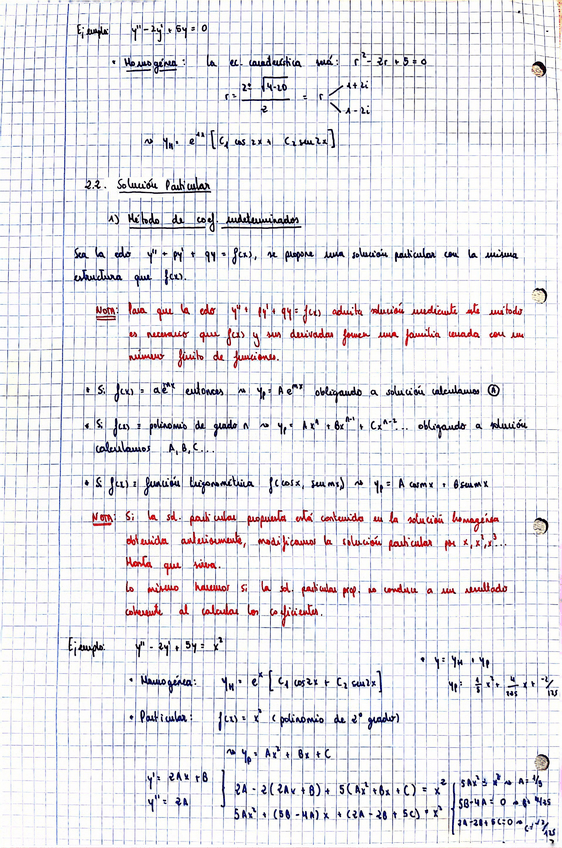 Ejemplo: y'' - 2y' + 5y = 0
• Homogénea: la ec. característica será: r² - 2r + 5 = 0
r = 2± √4-20 / 2 = r 1+2i
1-2i
↝ y_H = e^{1x} [C₁ cos 2x + C₂ sen 2x]
2.2. Solución Particular
1) Método de coef. indeterminados
Sea la edo y'' + py' + qy = f(x), se propone una solución particular con la misma
estructura que f(x).
NOTA: Para que la edo y'' + py' + qy = f(x) admita solución mediante este método
es necesario que f(x) y sus derivadas formen una familia cerrada con un
número finito de funciones.
• Si f(x) = ae^{mx} entonces ↝ y_p = A e^{mx} obligando a solución calculamos Ⓐ
• Si f(x) = polinomio de grado n ↝ y_p = Ax^n + Bx^{n-1} + Cx^{n-2}... obligando a solución
calculamos A, B, C...
• Si f(x) = función trigonométrica f(cosx, senmx) ↝ y_p = A cosmx + B senmx
NOTA: Si la sol. particular propuesta está contenida en la solución homogénea
obtenida anteriormente, modificamos la solución particular por x, x², x³...
Hasta que sirva.
Lo mismo haremos si la sol. particular prop. no conduce a un resultado
coherente al calcular los coeficientes.
Ejemplo: y'' - 2y' + 5y = x²
• y = y_H + y_p
• Homogénea: y_H = e^x [C₁ cos2x + C₂ sen2x]
y_p: 1/5 x² + 4/25 x + -2/125
• Particular: f(x) = x² (polinomio de 2º grado)
↝ y_p = Ax² + Bx + C
y' = 2Ax + B
y'' = 2A
2A - 2(2Ax + B) + 5(Ax² + Bx + C) = x²
5Ax² + (5B - 4A)x + (2A - 2B + 5C) = x²
5Ax² = x² ↝ A = 1/5
5B - 4A = 0 ↝ B = 4/25
2A - 2B + 5C = 0 ↝ C = -2/125